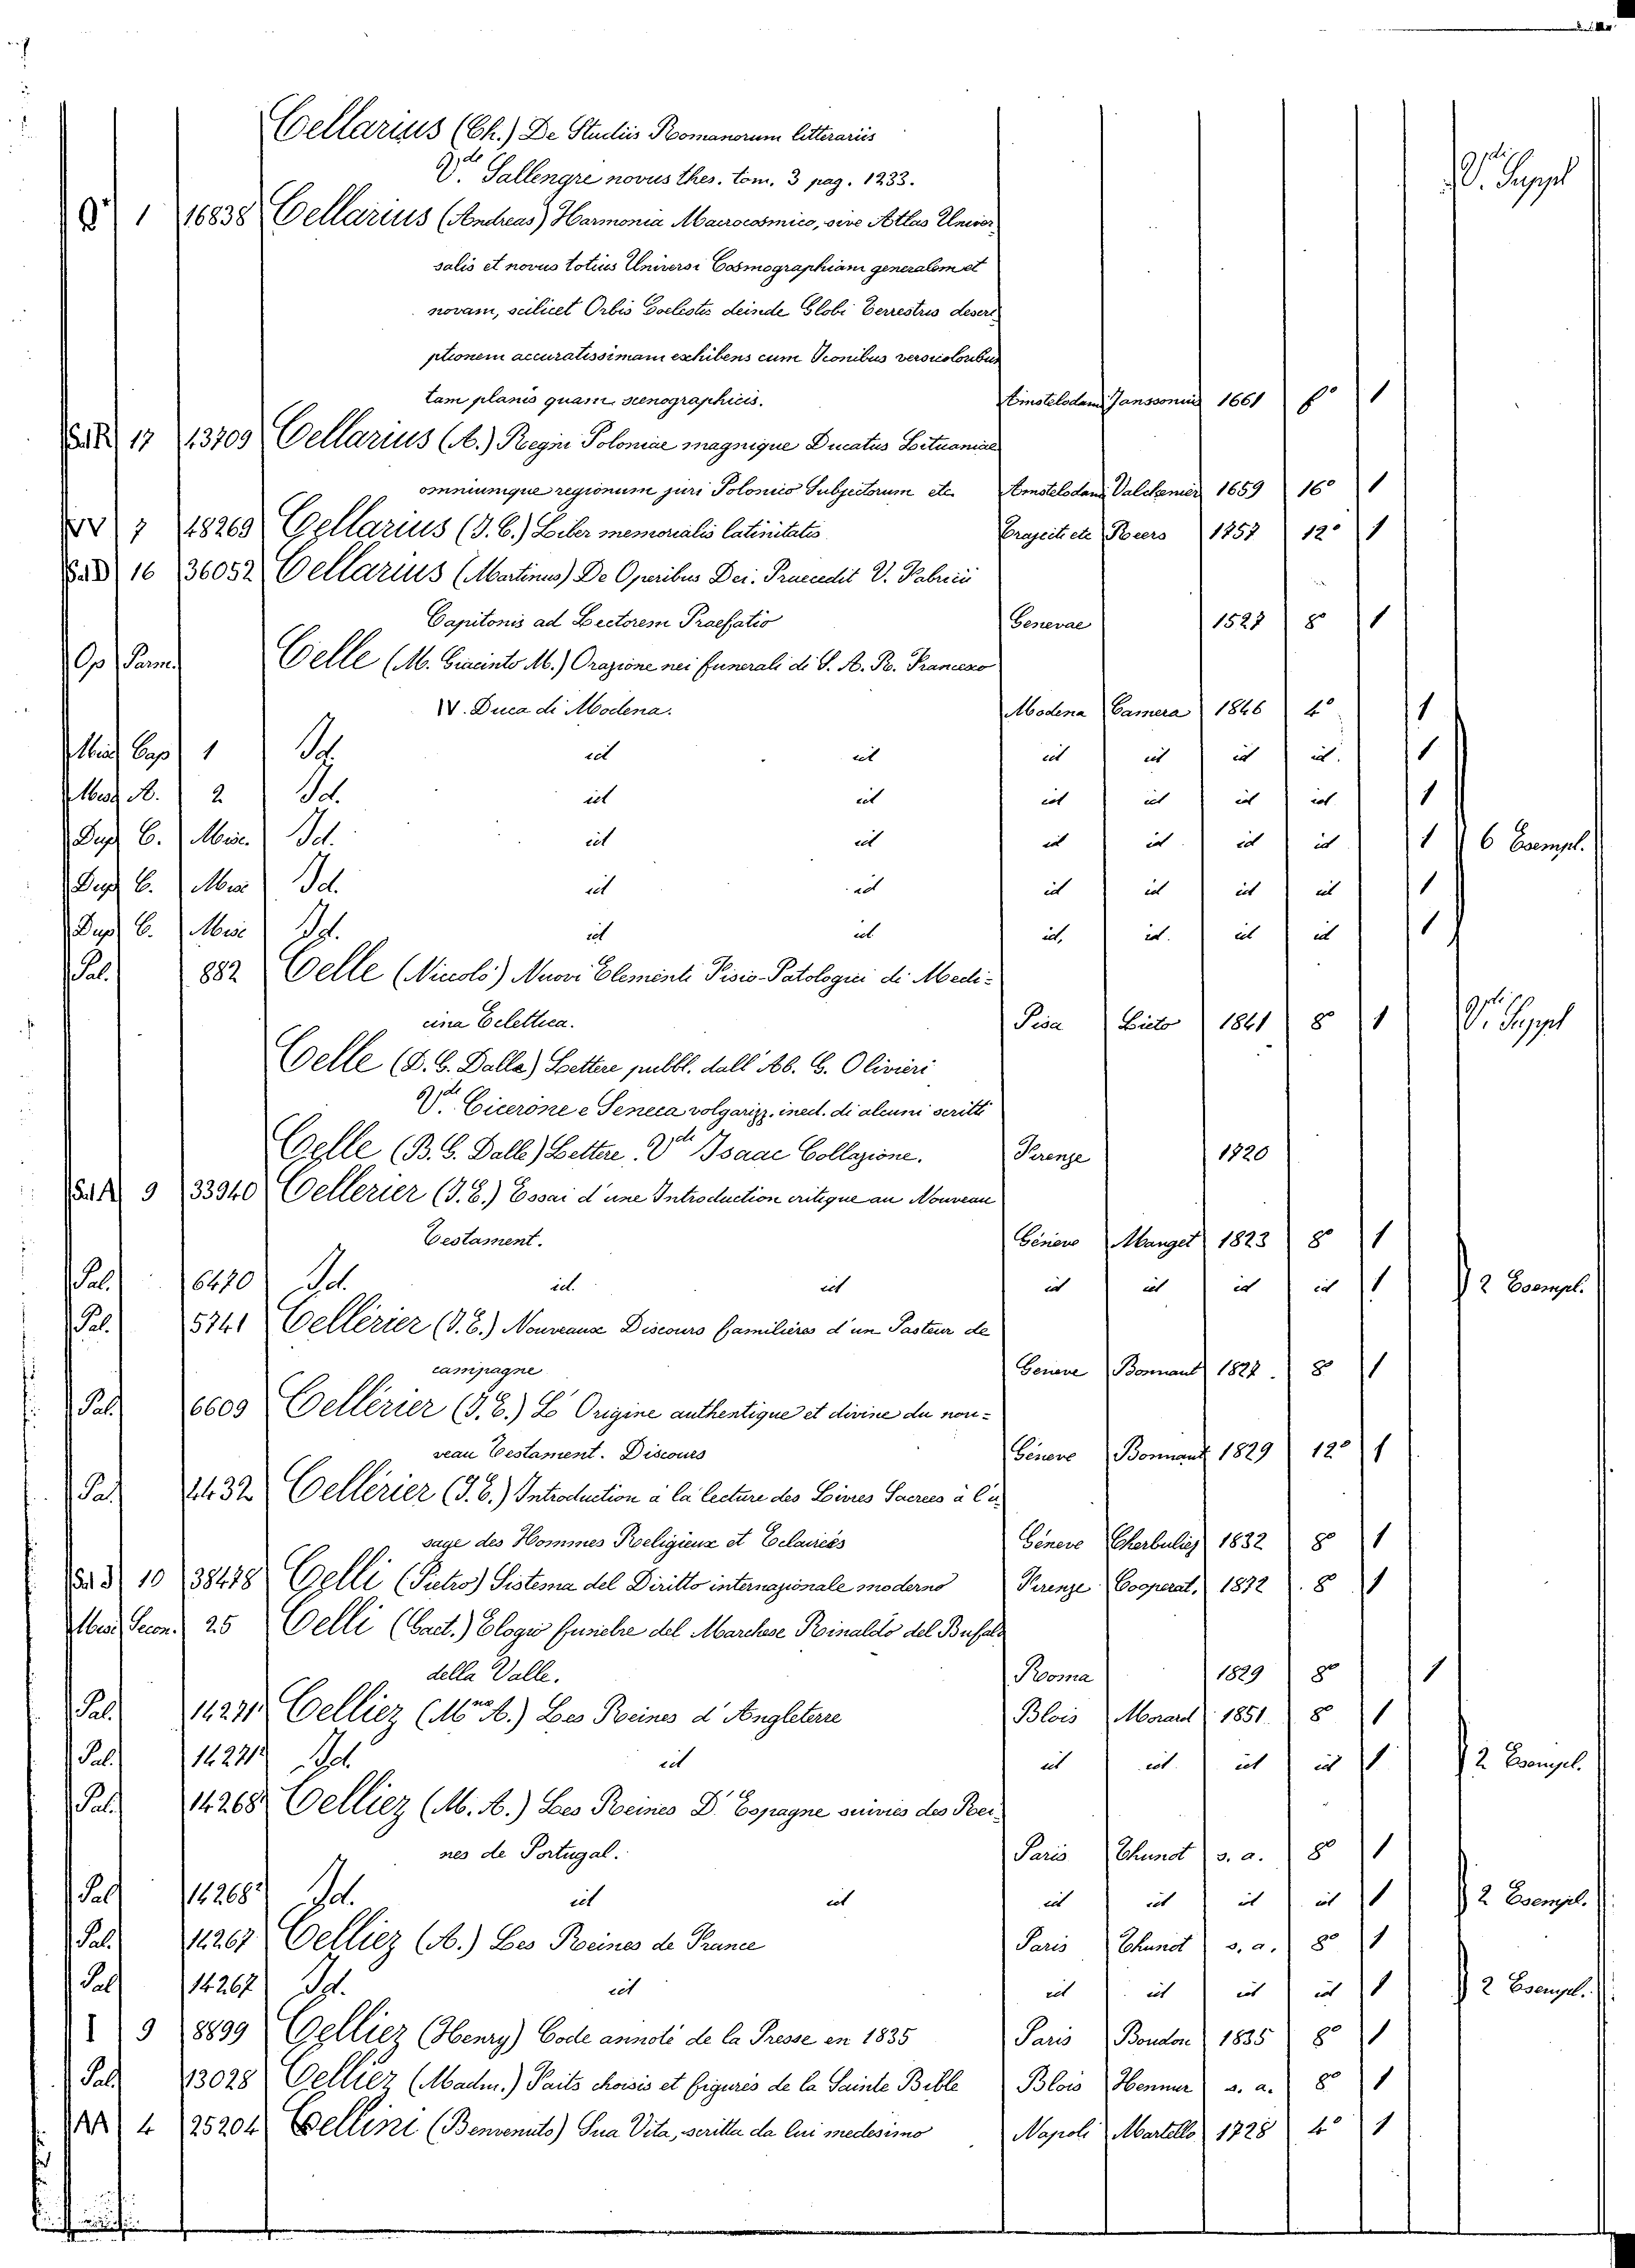 Cellarius (Ch.) De Studiis Romanorum litterariis
V.de Sallengre novus thes. tom. 3 pag. 1233. V. Suppl
1 16838 Cellarius (Andreas) Harmonia Macrocosmico, sive Atlas Univer
salis et novus totius Universi Cosmographiam generalem et
novam, scilicet Orbis Coelestis deinde Globi Terrestris descri
ptionem accuratissimam exhibens cum Iconibus versicoloribus
tam planis quam scenographicis. Amstelodami Janssonius 1661 fo 1
17 13709 Cellarius (A.) Regni Poloniae magnique Ducatus Lituaniae
omniumque regionum juri Polonico Subjectorum etc. Amstelodam Valckenier 1659 16o 1
7 18269 Cellarius (J. C.) Liber memorialis latinitatis Trajecti etc Poeers 1757 12o 1
16 36052 Cellarius (Martinus) De Operibus Dei. Praecedit V. Fabricii
Capitonis ad Lectorem Praefatio Genevae 1527 8o 1
Op Parm. Celle (M. Giacinto M.) Orazione nei funerali di S. A. R. Francesco
IV. Duca di Modena. Modena Camera 1846 4o 1
Misc Cap 1 Id. id id id id id id. 1
Misc A. 2 Id. id id id id id id 1
Dup C. Misc. Id. id id id id id id 1 6 Esempl.
Dup C. Misc Id. id id id id id id 1
Dup C. Misc Id. id id id. id. id id 1
Pal. 882 Celle (Niccolò) Nuovi Elementi Fisio-Patologici di Medi-
cina Eclettica. Pisa Lieto 1841 8o 1 V. Suppl
Celle (D. G. Dalla) Lettere pubbl. dall' Ab. G. Olivieri
V.de Cicerone e Seneca volgarizz. ined. di alcuni scritti
Celle (B. G. Dalle) Lettere. V.de Isaac Collazione. Firenze 1720
9 33940 Cellerier (J. E.) Essai d'une Introduction critique au Nouveau
Testament. Géneve Manget 1823 8o 1
Pal. 6470 Id. id. id id id id id 1 2 Esempl.
Pal. 5741 Cellérier (J. E.) Nouveaux Discours familières d'un Pasteur de
campagne Geneve Bonnant 1827. 8o 1
Pal. 6609 Cellérier (J. E.) L'Origine authentique et divine du nou-
veau Testament. Discours Géneve Bonnant 1829 12o 1
Pal 1432 Cellérier (J. E.) Introduction à la lecture des Livres Sacrees à l'u
sage des Hommes Religieux et Eclairées Géneve Cherbuliez 1832 8o 1
10 38478 Celli (Pietro) Sistema del Diritto internazionale moderno Firenze Cooperat. 1872 8o 1
Misc Secon. 25 Celli (Gaet.) Elogio funebre del Marchese Rinaldo del Bufalo
della Valle. Roma 1829 8o 1
Pal. 14271 Celliez (Mme A.) Les Reines d'Angleterre Blois Morard 1851. 8o 1
Pal. 14271 2 Id. id id id. id id 1 2 Esempl.
Pal. 14268 Celliez (M. A.) Les Reines D'Espagne suivies des Rei
nes de Portugal. Paris Thunot s. a. 8o 1
Pal 14268 2 Id. id id id id id id 1 2 Esempl.
Pal. 14267 Celliez (A.) Les Reines de France Paris Thunot s. a. 8o 1
Pal 14267 Id. id id id id id 1 2 Esempl.
I 9 8899 Celliez (Henry) Code annoté de la Presse en 1835 Paris Boudon 1835 8o 1
Pal 13028 Celliez (Madm.) Faits choisis et figurés de la Sainte Bible Blois Henner s. a. 8o 1
4 25204 Cellini (Benvenuto) Sua Vita, scritta da lui medesimo Napoli Martello 1728 4o 1